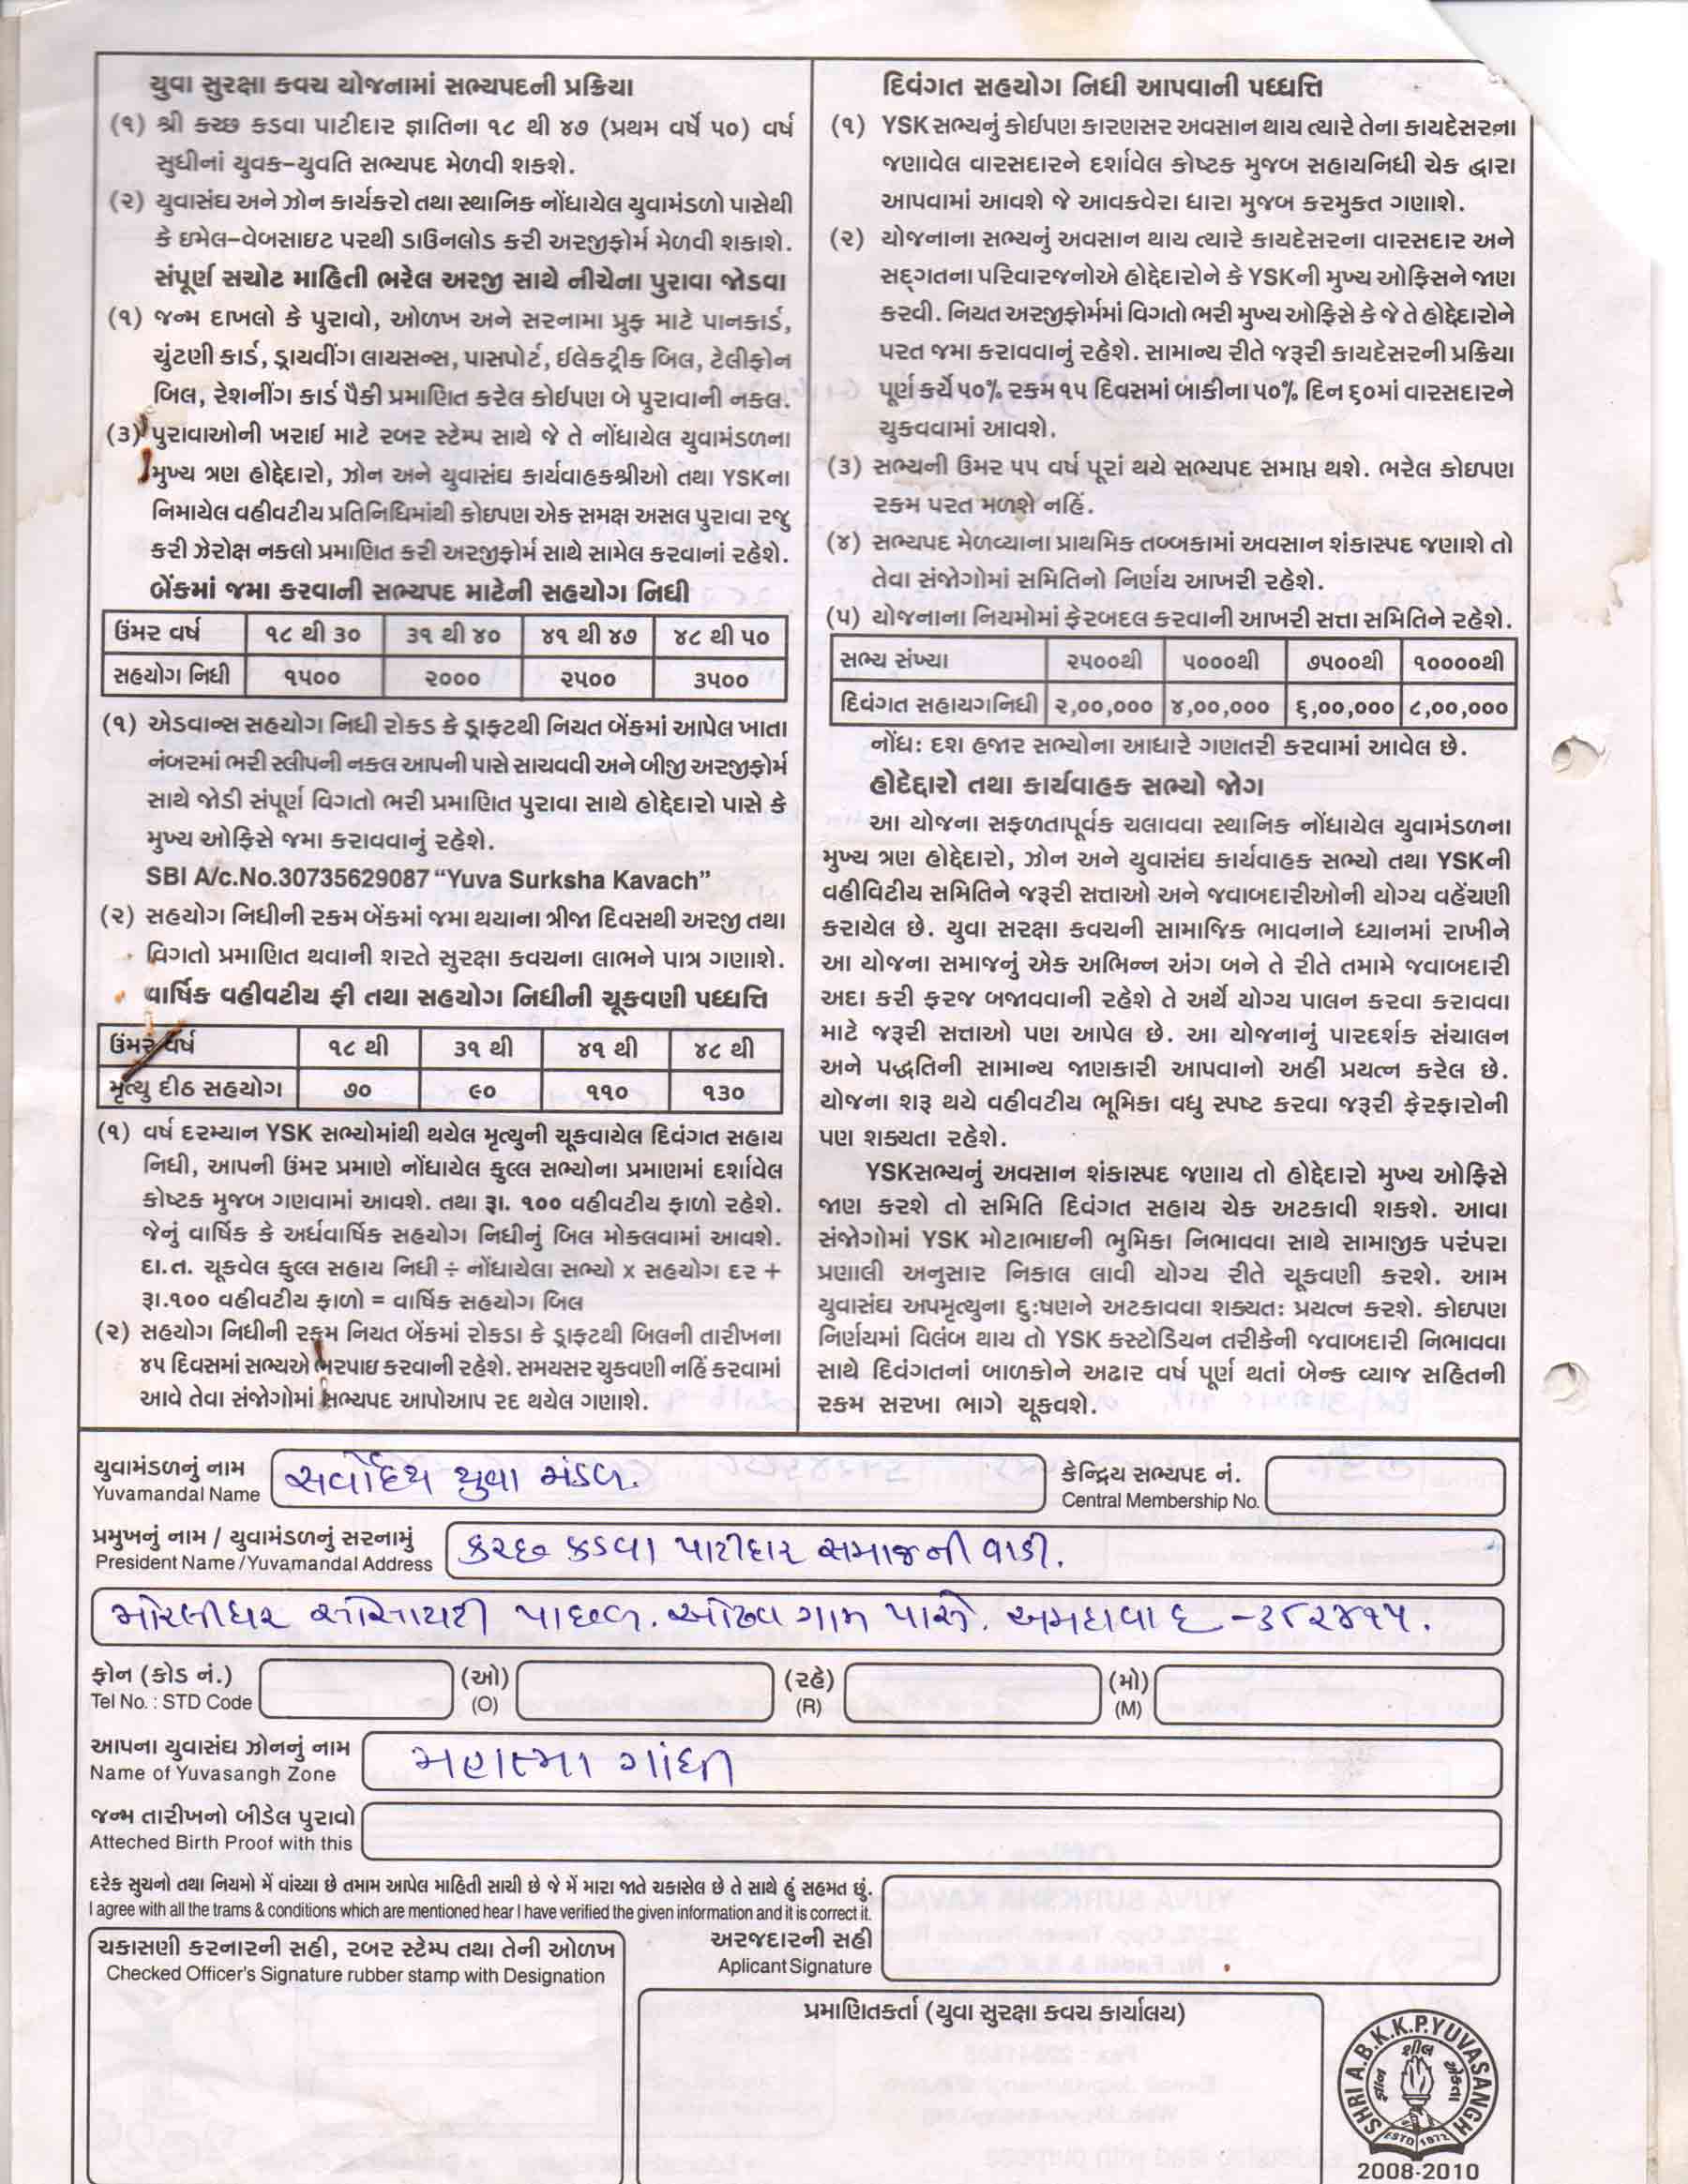 યુવા સુરક્ષા કવચ યોજનામાં સભ્યપદની પ્રક્રિયા
(૧) શ્રી કચ્છ કડવા પાટીદાર જ્ઞાતિના ૧૮ થી ૪૭ (પ્રથમ વર્ષે ૫૦) વર્ષ
સુધીનાં યુવક-યુવતિ સભ્યપદ મેળવી શકશે.
(૨) યુવાસંઘ અને ઝોન કાર્યકરો તથા સ્થાનિક નોંધાયેલ યુવામંડળો પાસેથી
કે ઇમેલ-વેબસાઇટ પરથી ડાઉનલોડ કરી અરજીફોર્મ મેળવી શકાશે.
સંપૂર્ણ સચોટ માહિતી ભરેલ અરજી સાથે નીચેના પુરાવા જોડવા
(૧) જન્મ દાખલો કે પુરાવો, ઓળખ અને સરનામા પ્રુફ માટે પાનકાર્ડ,
ચુંટણી કાર્ડ, ડ્રાયવીંગ લાયસન્સ, પાસપોર્ટ, ઈલેક્ટ્રીક બિલ, ટેલીફોન
બિલ, રેશનીંગ કાર્ડ પૈકી પ્રમાણિત કરેલ કોઈપણ બે પુરાવાની નકલ.
(૩) પુરાવાઓની ખરાઈ માટે રબર સ્ટેમ્પ સાથે જે તે નોંધાયેલ યુવામંડળના
મુખ્ય ત્રણ હોદ્દેદારો, ઝોન અને યુવાસંઘ કાર્યવાહકશ્રીઓ તથા YSKના
નિમાયેલ વહીવટીય પ્રતિનિધિમાંથી કોઇપણ એક સમક્ષ અસલ પુરાવા રજુ
કરી ઝેરોક્ષ નકલો પ્રમાણિત કરી અરજીફોર્મ સાથે સામેલ કરવાનાં રહેશે.
બેંકમાં જમા કરવાની સભ્યપદ માટેની સહયોગ નિધી
ઉંમર વર્ષ ૧૮ થી ૩૦ ૩૧ થી ૪૦ ૪૧ થી ૪૭ ૪૮ થી ૫૦
સહયોગ નિધી ૧૫૦૦ ૨૦૦૦ ૨૫૦૦ ૩૫૦૦
(૧) એડવાન્સ સહયોગ નિધી રોકડ કે ડ્રાફ્ટથી નિયત બેંકમાં આપેલ ખાતા
નંબરમાં ભરી સ્લીપની નકલ આપની પાસે સાચવવી અને બીજી અરજીફોર્મ
સાથે જોડી સંપૂર્ણ વિગતો ભરી પ્રમાણિત પુરાવા સાથે હોદ્દેદારો પાસે કે
મુખ્ય ઓફિસે જમા કરાવવાનું રહેશે.
SBI A/c.No.30735629087 “Yuva Surksha Kavach”
(૨) સહયોગ નિધીની રકમ બેંકમાં જમા થયાના ત્રીજા દિવસથી અરજી તથા
વિગતો પ્રમાણિત થવાની શરતે સુરક્ષા કવચના લાભને પાત્ર ગણાશે.
વાર્ષિક વહીવટીય ફી તથા સહયોગ નિધીની ચૂકવણી પધ્ધત્તિ
ઉંમર વર્ષ ૧૮ થી ૩૧ થી ૪૧ થી ૪૮ થી
મૃત્યુ દીઠ સહયોગ ૭૦ ૯૦ ૧૧૦ ૧૩૦
(૧) વર્ષ દરમ્યાન YSK સભ્યોમાંથી થયેલ મૃત્યુની ચૂકવાયેલ દિવંગત સહાય
નિધી, આપની ઉંમર પ્રમાણે નોંધાયેલ કુલ્લ સભ્યોના પ્રમાણમાં દર્શાવેલ
કોષ્ટક મુજબ ગણવામાં આવશે. તથા રૂા. ૧૦૦ વહીવટીય ફાળો રહેશે.
જેનું વાર્ષિક કે અર્ધવાર્ષિક સહયોગ નિધીનું બિલ મોકલવામાં આવશે.
દા.ત. ચૂકવેલ કુલ્લ સહાય નિધી ÷ નોંધાયેલા સભ્યો x સહયોગ દર +
રૂા.૧૦૦ વહીવટીય ફાળો = વાર્ષિક સહયોગ બિલ
(૨) સહયોગ નિધીની રકમ નિયત બેંકમાં રોકડા કે ડ્રાફ્ટથી બિલની તારીખના
૪૫ દિવસમાં સભ્યએ ભરપાઇ કરવાની રહેશે. સમયસર ચુકવણી નહિં કરવામાં
આવે તેવા સંજોગોમાં સભ્યપદ આપોઆપ રદ થયેલ ગણાશે.
દિવંગત સહયોગ નિધી આપવાની પધ્ધત્તિ
(૧) YSKસભ્યનું કોઈપણ કારણસર અવસાન થાય ત્યારે તેના કાયદેસરના
જણાવેલ વારસદારને દર્શાવેલ કોષ્ટક મુજબ સહાયનિધી ચેક દ્વારા
આપવામાં આવશે જે આવકવેરા ધારા મુજબ કરમુક્ત ગણાશે.
(૨) યોજનાના સભ્યનું અવસાન થાય ત્યારે કાયદેસરના વારસદાર અને
સદ્ગતના પરિવારજનોએ હોદ્દેદારોને કે YSKની મુખ્ય ઓફિસને જાણ
કરવી. નિયત અરજીફોર્મમાં વિગતો ભરી મુખ્ય ઓફિસે કે જે તે હોદ્દેદારોને
પરત જમા કરાવવાનું રહેશે. સામાન્ય રીતે જરૂરી કાયદેસરની પ્રક્રિયા
પૂર્ણ કર્યે ૫૦% રકમ ૧૫ દિવસમાં બાકીના ૫૦% દિન ૬૦માં વારસદારને
ચુકવવામાં આવશે.
(૩) સભ્યની ઉંમર ૫૫ વર્ષ પૂરાં થયે સભ્યપદ સમાપ્ત થશે. ભરેલ કોઇપણ
રકમ પરત મળશે નહિં.
(૪) સભ્યપદ મેળવ્યાના પ્રાથમિક તબ્બકામાં અવસાન શંકાસ્પદ જણાશે તો
તેવા સંજોગોમાં સમિતિનો નિર્ણય આખરી રહેશે.
(૫) યોજનાના નિયમોમાં ફેરબદલ કરવાની આખરી સત્તા સમિતિને રહેશે.
સભ્ય સંખ્યા ૨૫૦૦થી ૫૦૦૦થી ૭૫૦૦થી ૧૦૦૦૦થી
દિવંગત સહાયગનિધી ૨,૦૦,૦૦૦ ૪,૦૦,૦૦૦ ૬,૦૦,૦૦૦ ૮,૦૦,૦૦૦
નોંધ: દશ હજાર સભ્યોના આધારે ગણતરી કરવામાં આવેલ છે.
હોદેદ્દારો તથા કાર્યવાહક સભ્યો જોગ
આ યોજના સફળતાપૂર્વક ચલાવવા સ્થાનિક નોંધાયેલ યુવામંડળના
મુખ્ય ત્રણ હોદ્દેદારો, ઝોન અને યુવાસંઘ કાર્યવાહક સભ્યો તથા YSKની
વહીવિટીય સમિતિને જરૂરી સત્તાઓ અને જવાબદારીઓની યોગ્ય વહેંચણી
કરાયેલ છે. યુવા સરક્ષા કવચની સામાજિક ભાવનાને ધ્યાનમાં રાખીને
આ યોજના સમાજનું એક અભિન્ન અંગ બને તે રીતે તમામે જવાબદારી
અદા કરી ફરજ બજાવવાની રહેશે તે અર્થે યોગ્ય પાલન કરવા કરાવવા
માટે જરૂરી સત્તાઓ પણ આપેલ છે. આ યોજનાનું પારદર્શક સંચાલન
અને પદ્ધતિની સામાન્ય જાણકારી આપવાનો અહીં પ્રયત્ન કરેલ છે.
યોજના શરૂ થયે વહીવટીય ભૂમિકા વધુ સ્પષ્ટ કરવા જરૂરી ફેરફારોની
પણ શક્યતા રહેશે.
YSKસભ્યનું અવસાન શંકાસ્પદ જણાય તો હોદ્દેદારો મુખ્ય ઓફિસે
જાણ કરશે તો સમિતિ દિવંગત સહાય ચેક અટકાવી શકશે. આવા
સંજોગોમાં YSK મોટાભાઇની ભુમિકા નિભાવવા સાથે સામાજીક પરંપરા
પ્રણાલી અનુસાર નિકાલ લાવી યોગ્ય રીતે ચૂકવણી કરશે. આમ
યુવાસંઘ અપમૃત્યુના દુ:ષણને અટકાવવા શક્યત: પ્રયત્ન કરશે. કોઇપણ
નિર્ણયમાં વિલંબ થાય તો YSK કસ્ટોડિયન તરીકેની જવાબદારી નિભાવવા
સાથે દિવંગતનાં બાળકોને અઢાર વર્ષ પૂર્ણ થતાં બેન્ક વ્યાજ સહિતની
રકમ સરખા ભાગે ચૂકવશે.
યુવામંડળનું નામ સર્વોદય યુવા મંડળ. કેન્દ્રિય સભ્યપદ નં.
Yuvamandal Name Central Membership No.
પ્રમુખનું નામ / યુવામંડળનું સરનામું કચ્છ કડવા પાટીદાર સમાજની વાડી.
President Name /Yuvamandal Address
મોરલીધર સોસાયટી પાછળ. ઓઢવ ગામ પાસે. અમદાવાદ -૩૮૨૪૧૫.
ફોન (કોડ નં.) (ઓ) (રહે) (મો)
Tel No. : STD Code (O) (R) (M)
આપના યુવાસંઘ ઝોનનું નામ મહાત્મા ગાંધી
Name of Yuvasangh Zone
જન્મ તારીખનો બીડેલ પુરાવો
Atteched Birth Proof with this
દરેક સુચનો તથા નિયમો મેં વાંચ્યા છે તમામ આપેલ માહિતી સાચી છે જે મેં મારા જાતે ચકાસેલ છે તે સાથે હું સહમત છું.
I agree with all the trams & conditions which are mentioned hear I have verified the given information and it is correct it.
અરજદારની સહી
Aplicant Signature
ચકાસણી કરનારની સહી, રબર સ્ટેમ્પ તથા તેની ઓળખ
Checked Officer's Signature rubber stamp with Designation
પ્રમાણિતકર્તા (યુવા સુરક્ષા કવચ કાર્યાલય)
SHRI A.B.K.K.P.YUVASANGH
શીલ
જ્ઞાન
એકતા
ESTD 1972
2008-2010